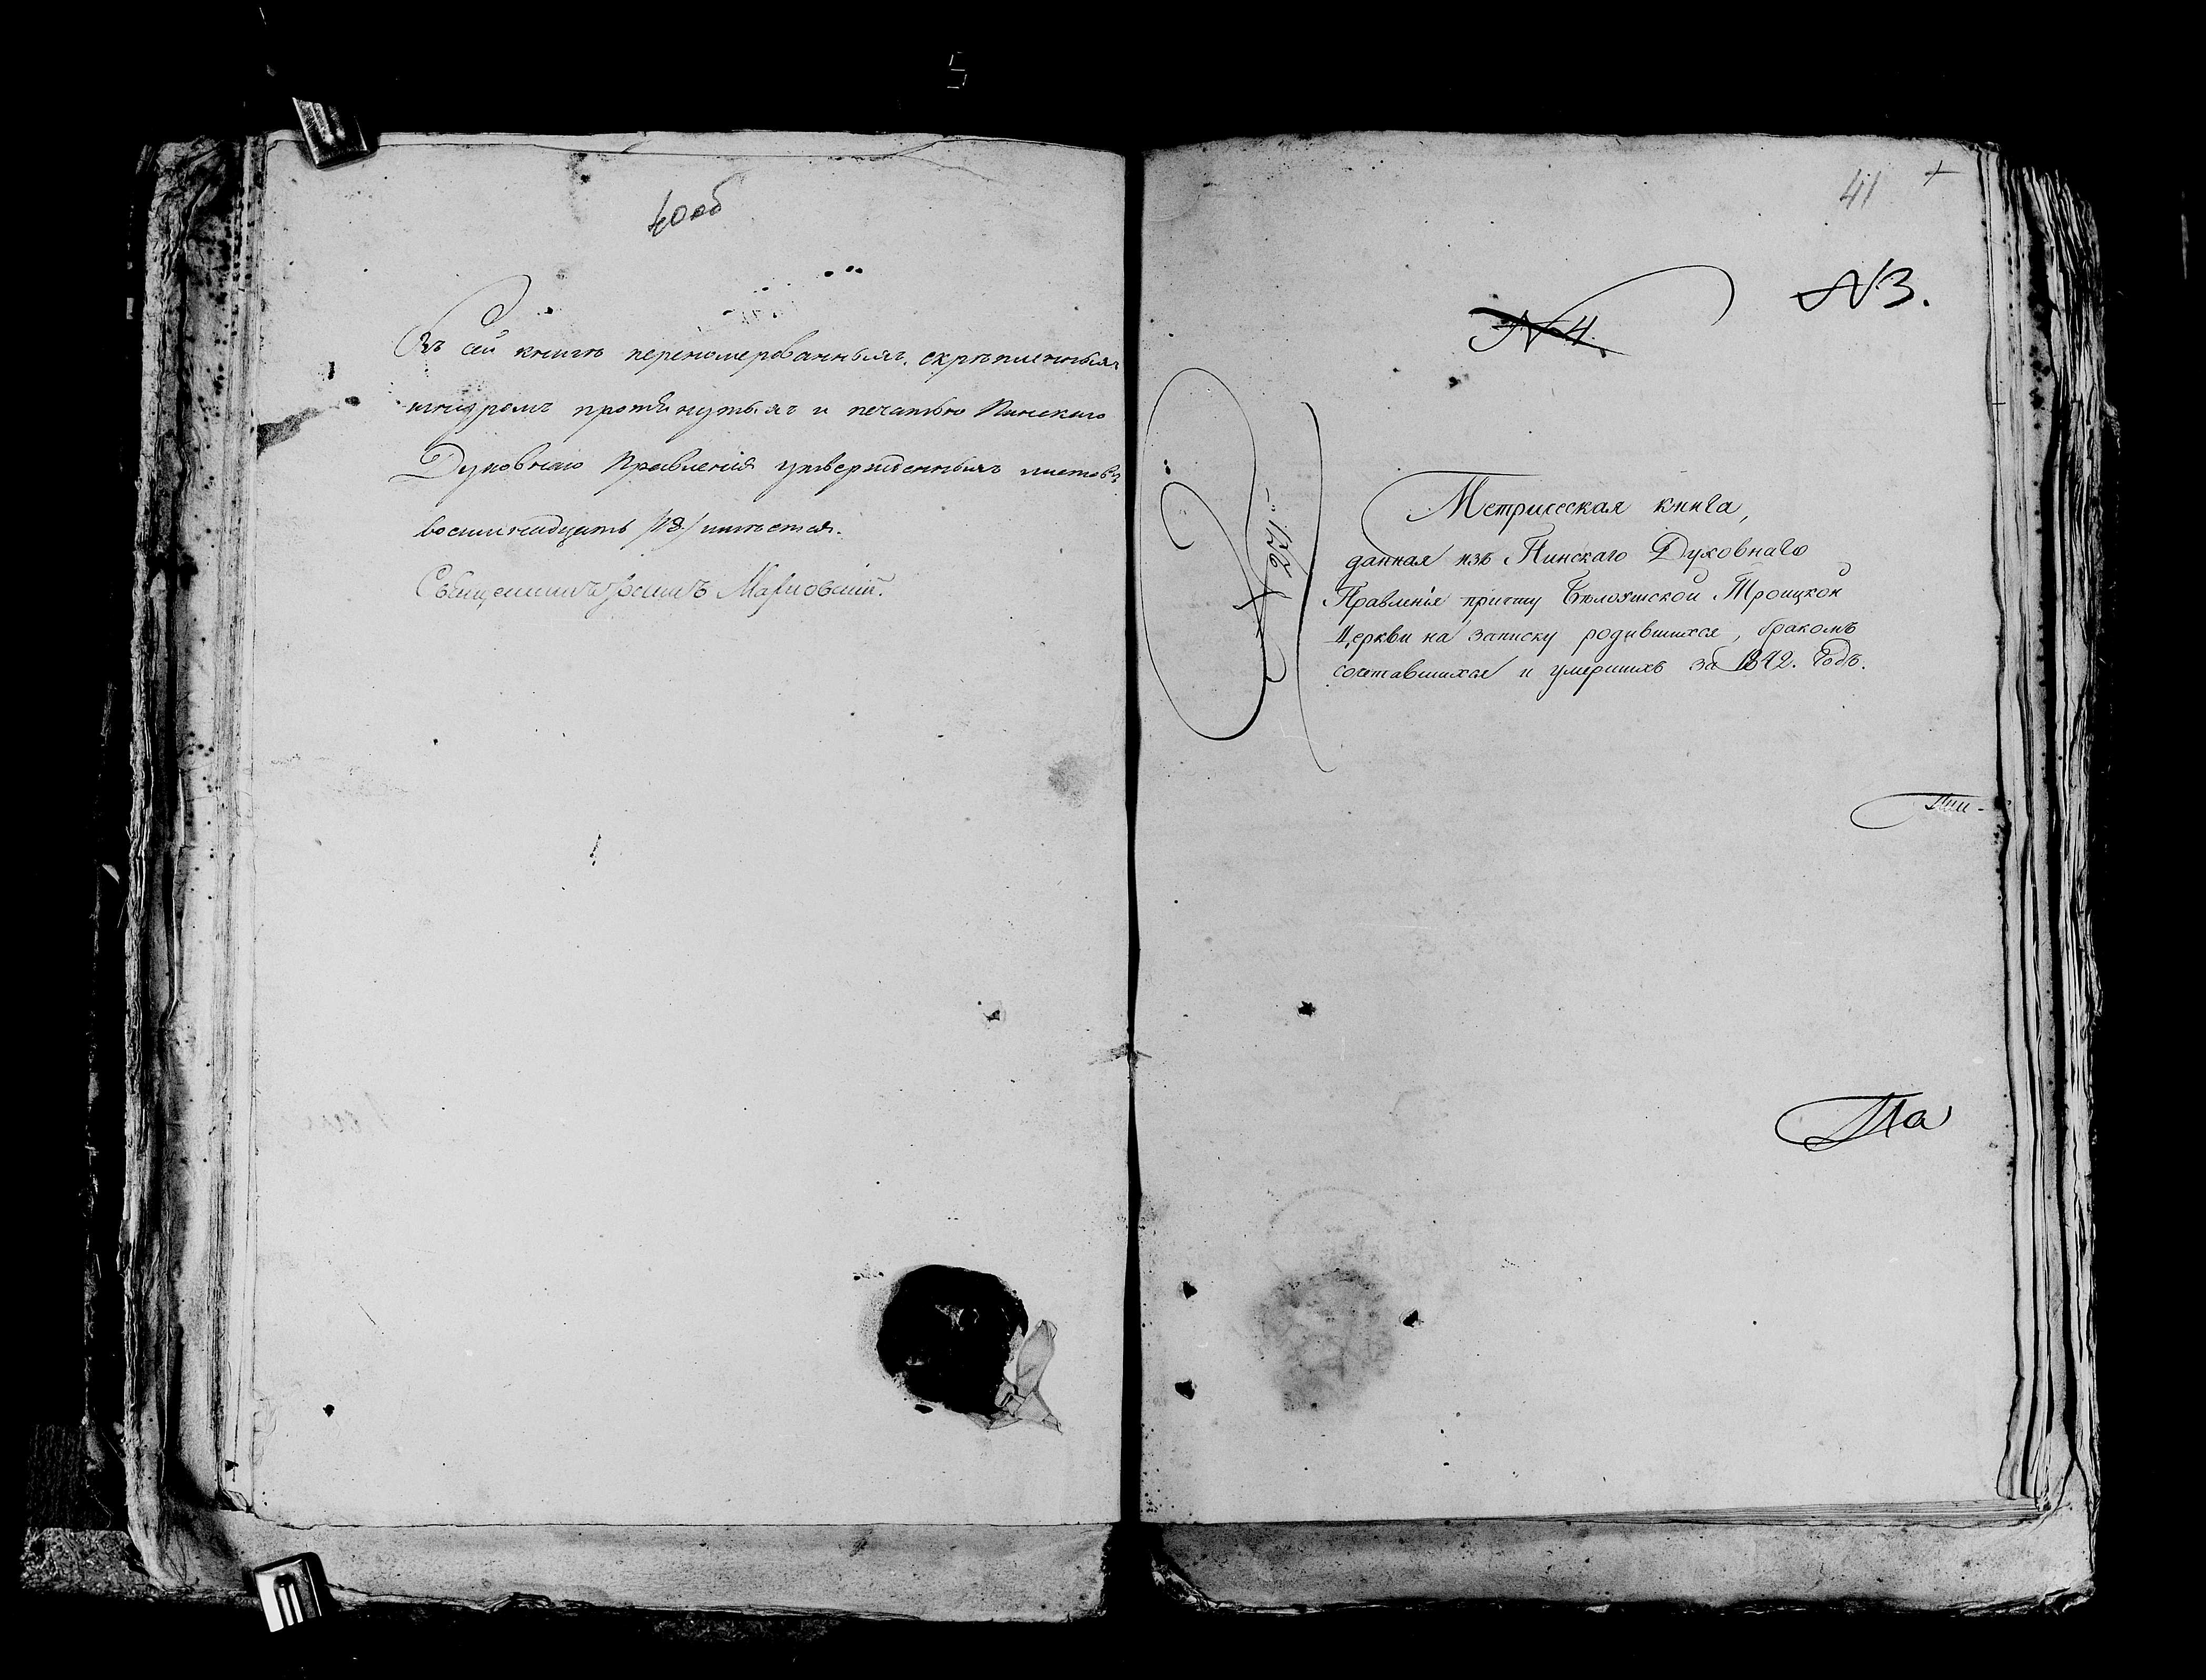 40об
Въ сей книгѣ переномерованныхъ, скрѣпленныхъ
шнуромъ протянутыхъ и печатью Пинскаго
Духовнаго Правленія утвержденныхъ листовъ
восимнадцать /18/ имѣется.
Священникъ
41
N 3.
N 4.
Метрическая книга,
данная изъ Пинскаго Духовнаго
Правленія причту Бѣлоушской Троицкой
Церкви на записку родившихся, бракомъ
сочетавшихся и умершихъ за 1842. Годъ.
Па